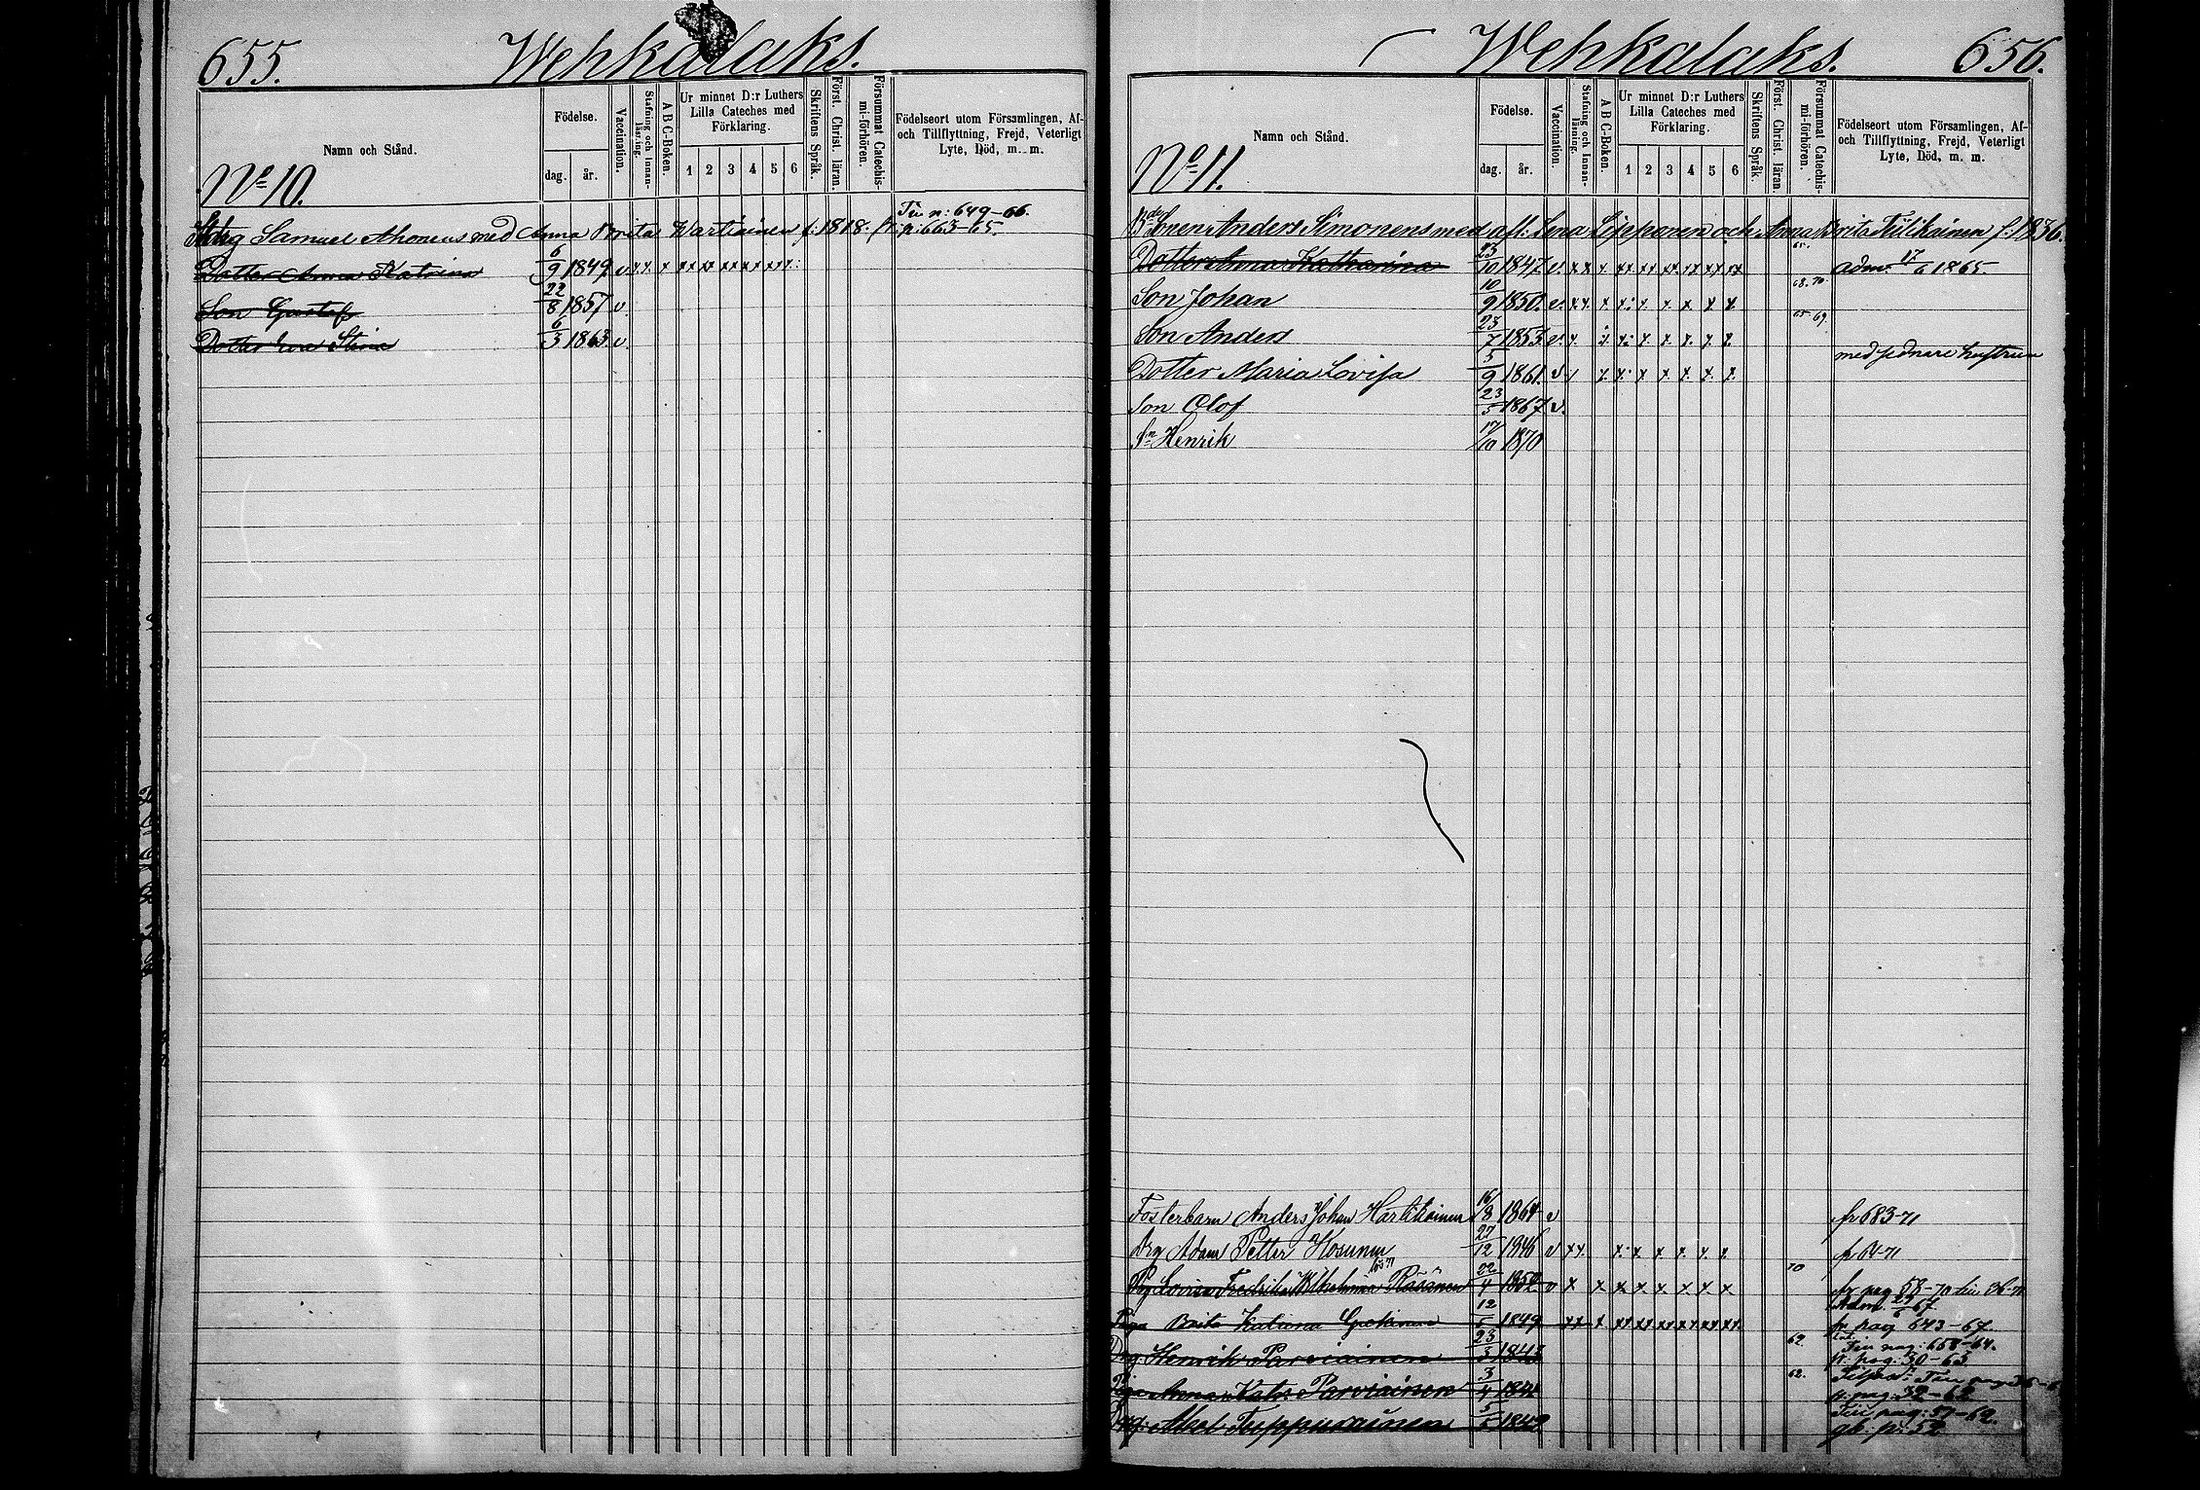 655. Wehkalaks.
Namn och Stånd.
Födelse.
dag. år.
Vaccination.
Stafning och Innan-läsning.
A B C-Boken.
Ur minnet D:r Luthers
Lilla Cateches med
Förklaring.
1 2 3 4 5 6
Skriftens Språk.
Först. Christ. läran.
Försummat Catechis-mi-förhören.
Födelseort utom Församlingen, Af-
och Tillflyttning, Frejd, Veterligt
Lyte, Död, m. m.
No 10.
Samuel Ahonens med Anna Brita Wartiainen f: 1818. fr. p: 663-65.
649-66.
Dotter Anna Katrina 6/9 1849 v x x x xx xx xx xx xx xx
Son Gustaf 22/8 1857 v
Dotter Eva Stina 6/3 1863 v.
Wehkalaks. 656.
Namn och Stånd.
Födelse.
dag. år.
Vaccination.
Stafning och Innan-läsning.
A B C-Boken.
Ur minnet D:r Luthers
Lilla Cateches med
Förklaring.
1 2 3 4 5 6
Skriftens Språk.
Först. Christ. läran.
Försummat Catechis-mi-förhören.
Födelseort utom Församlingen, Af-
och Tillflyttning, Frejd, Veterligt
Lyte, Död, m. m.
No 11.
Sonen Anders Simonens med afl: Lena Lipponen och Anna Brita Tülikainen f. 1836.
Dotter Anna Katharina 23/10 1847 v. x x x. xx xx xx xx xx xx 65. adm. 17/6 1865
Son Johan 10/9 1850. v. x x x x x x x x x 68. 70.
Son Anders 23/7 1853 v. x. x x x x x x x 65 69
Dotter Maria Lovisa 5/9 1861. v x x x x x x x med sednare hustrun
Son Olof 23/5 1867 v.
Sn Henrik 17/10 1870
Fosterbarn Anders Johan Hartikainen 16/8 1864 v fr 683-71
Drg Adam Petter Hosunen 27/12 1846 v x x x x x x x x fr 61-71
Pig Lovisa Fredrika Wilhelmina Räsänen 22/4 1852 v x x x x x x x x 70 fr pag 58-70 36-71
Piga Brita Katarina 12/5 1849 x x x xx xx xx xx xx xx Adm. 67 fr pag 643-67
Drg. Henrik Parviainen 23/3 1843 62. pag: 658-64. fr. pag: 30-63
Piga Anna Kat: Parviainen 3/4 62. fr. pag: 32-62
Drg. Abel Tuppurainen 5/5 pag: 57-62.